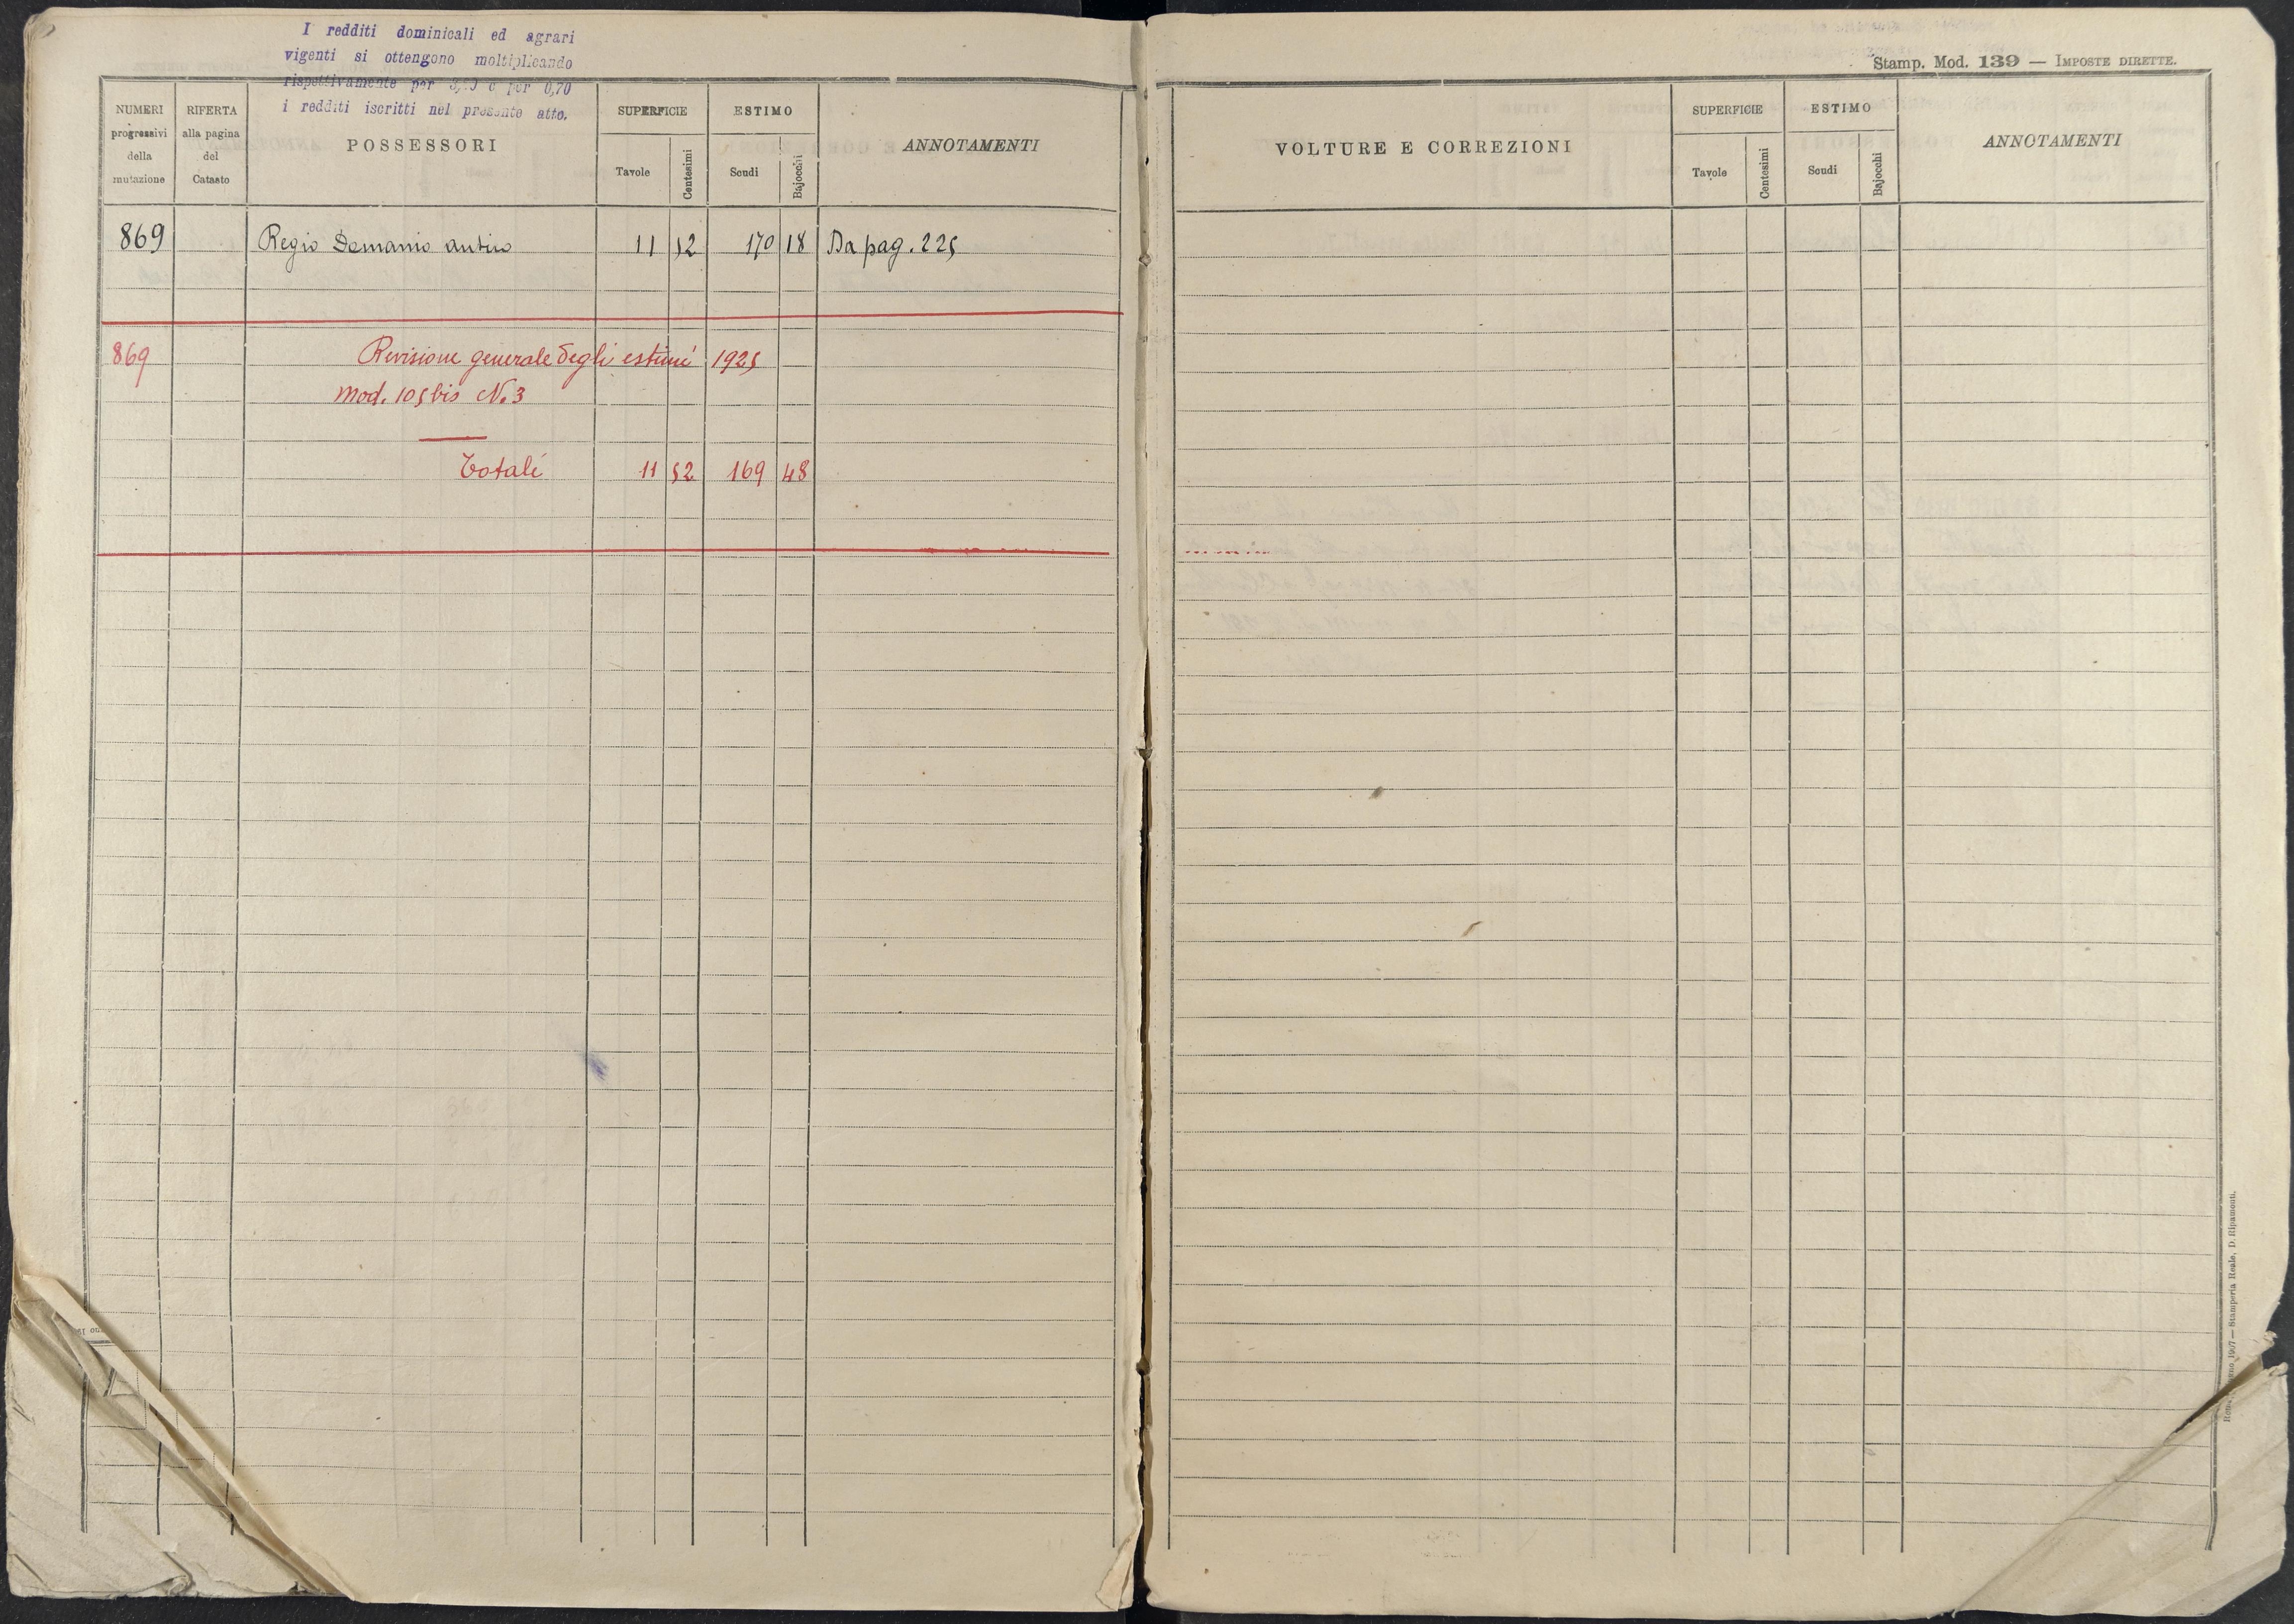 I redditi dominicali ed agrari
vigenti si ottengono moltiplicando
rispettivamente per e per 0,70
i redditi iscritti nel presente atto.
Stamp. Mod. 139 — IMPOSTE DIRETTE.
NUMERI progressivi della mutazione
RIFERTA alla pagina del Catasto
POSSESSORI
SUPERFICIE
Tavole Centesimi
ESTIMO
Scudi Bajocchi
ANNOTAMENTI
869 Regio Demanio antico 11 52 170 18 Da pag. 225
869 Revisione generale degli estimi 1925
Mod. 105 bis N. 3
Totali 11 52 169 48
VOLTURE E CORREZIONI
SUPERFICIE
Tavole Centesimi
ESTIMO
Scudi Bajocchi
ANNOTAMENTI
1907 — Stamperia Reale, D. Ripamonti.